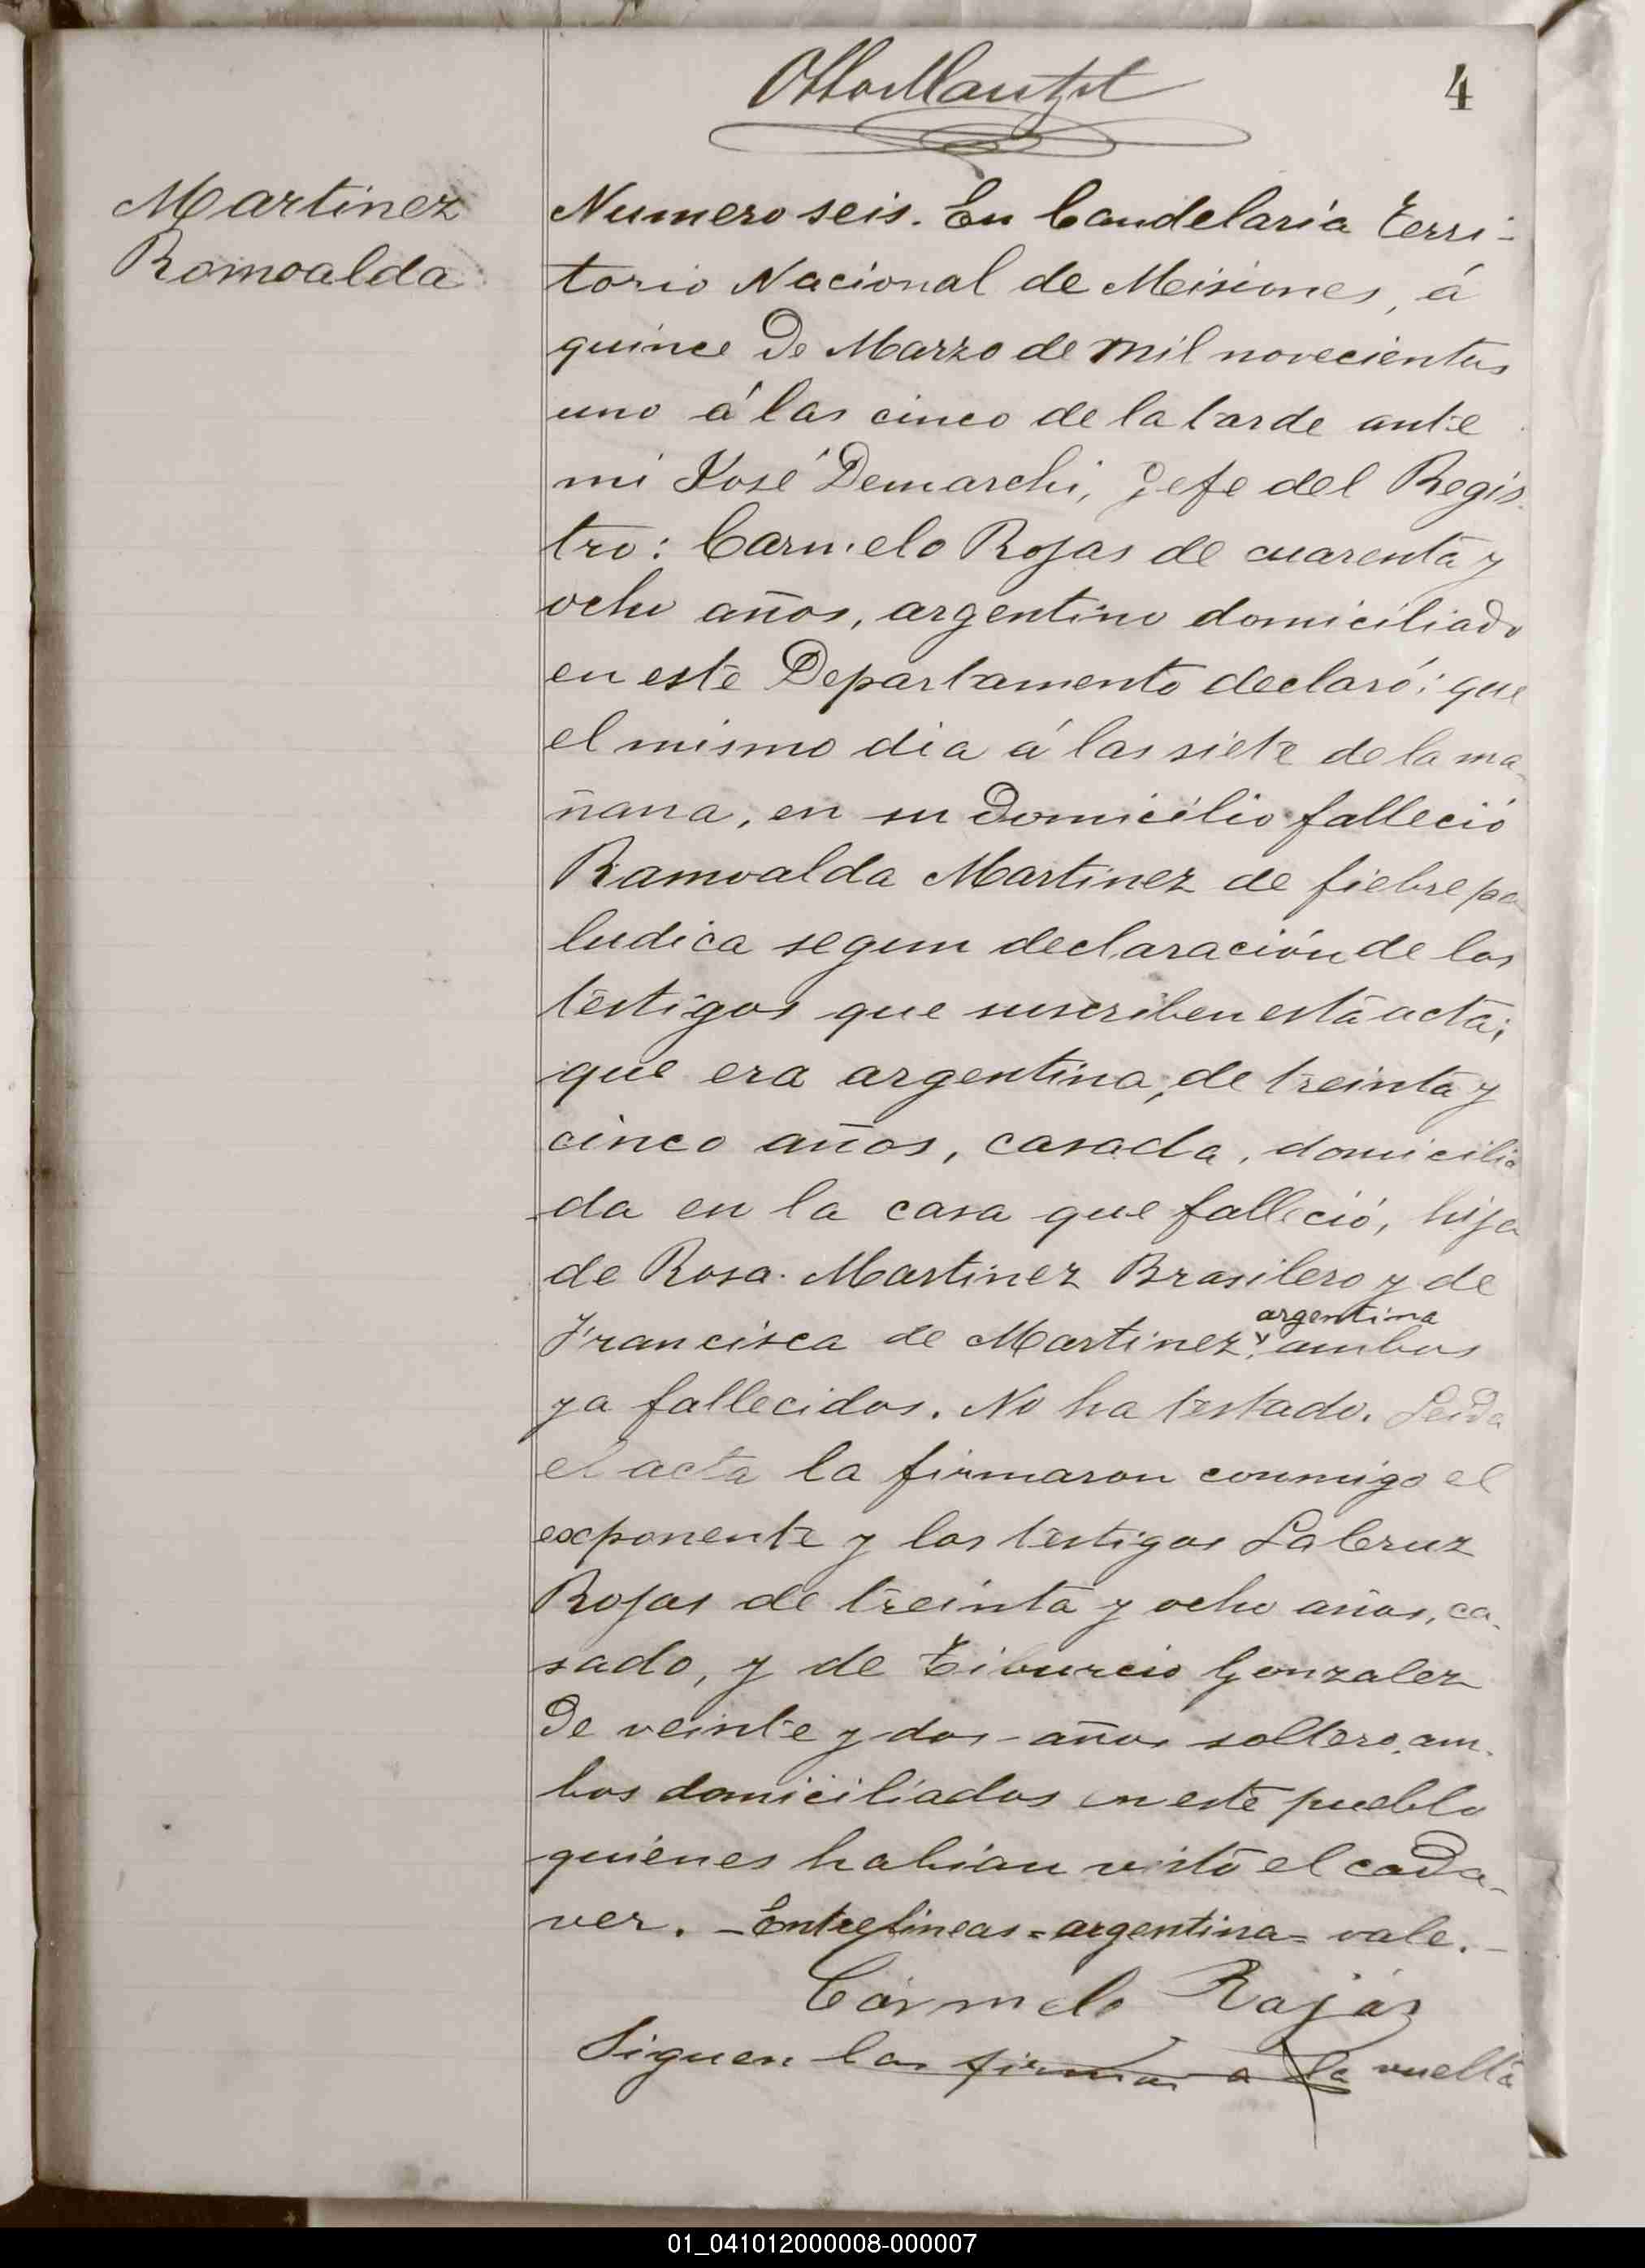 Otto Mantzel
4
Martinez
Romoalda
Numero seis. En Candelaria Terri-
torio Nacional de Misiones, á
quince de Marzo de mil novecientos
uno á las cinco de la tarde ante
mi José Demarchi, Gefe del Regis-
tro: Carmelo Rojas de cuarenta y
ocho años, argentino domiciliado
en este Departamento declaró: que
el mismo dia á las siete de la ma-
ñana, en su domicilio falleció
Ramoalda Martinez de fiebre pa
ludica segun declaración de los
testigos que suscriben esta acta;
que era argentina, de treinta y
cinco años, casada, domicilia
da en la casa que falleció, hija
de Rosa Martinez Brasilero y de
argentina
Francisca de Martinez, ambos
ya fallecidos. No ha testado. Leida
el acta la firmaron conmigo el
exponente y los testigos LaCruz
Rojas de treinta y ocho años, ca-
sado, y de Tiburcio Gonzalez
de veinte y dos años soltero, am-
bos domiciliados en este pueblo
quienes habian visto el cada-
ver. - Entrelineas = argentina = vale. -
Cármelo Rajás
Siguen las firmas a la vuelta
01_041012000008-000007